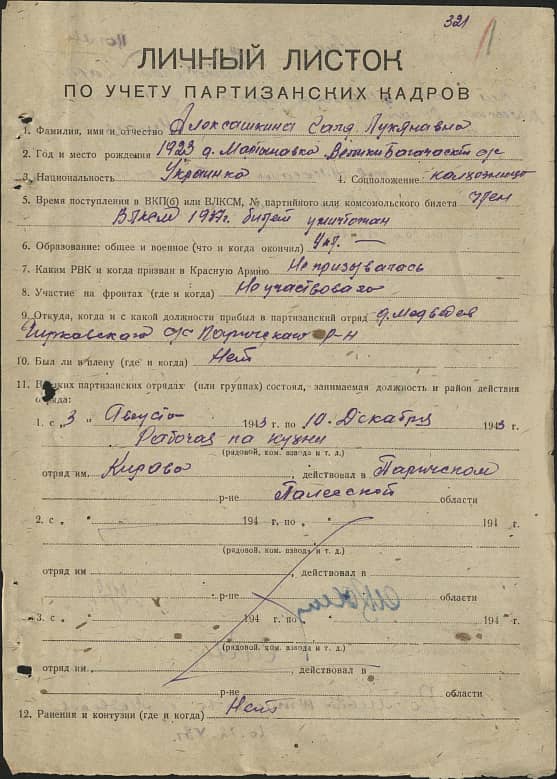 321
ЛИЧНЫЙ ЛИСТОК
ПО УЧЕТУ ПАРТИЗАНСКИХ КАДРОВ
1. Фамилия, имя и отчество Алексашкина Саля Лукянавна
2. Год и место рождения 1923 д. с/с
3. Национальность Украинка 4. Соцположение колхозница
5. Время поступления в ВКП(б) или ВЛКСМ, № партийного или комсомольского билета член
Влксм 1937г. билет уничтожан
6. Образование: общее и военное (что и когда окончил) 4 кл. —
7. Каким РВК и когда призван в Красную Армию Не призывалась
8. Участие на фронтах (где и когда) Не участвовала
9. Откуда, когда и с какой должности прибыл в партизанский отряд д. Медведев
Чирковского с/с Паричского Р-н
10. Был ли в плену (где и когда) Нет
11. В каких партизанских отрядах (или группах) состоял, занимаемая должность и район действия
отряда:
1. с „ 3 “ Августа 1943 г. по 10 Декабря 1943 г.
Рабочая на кухни
(рядовой, ком. взвода и т. д.)
отряд им. Кирова , действовал в Паричском
р-не Палесской области
2. с „ 194 г. по 194 г.
(рядовой, ком. взвода и т. д.)
отряд им , действовал в
р-не области
3. с „ 194 г. по 194 г.
(рядовой, ком. взвода и т. д.)
отряд им. , действовал в
р-не области
12. Ранения и контузии (где и когда) Нет